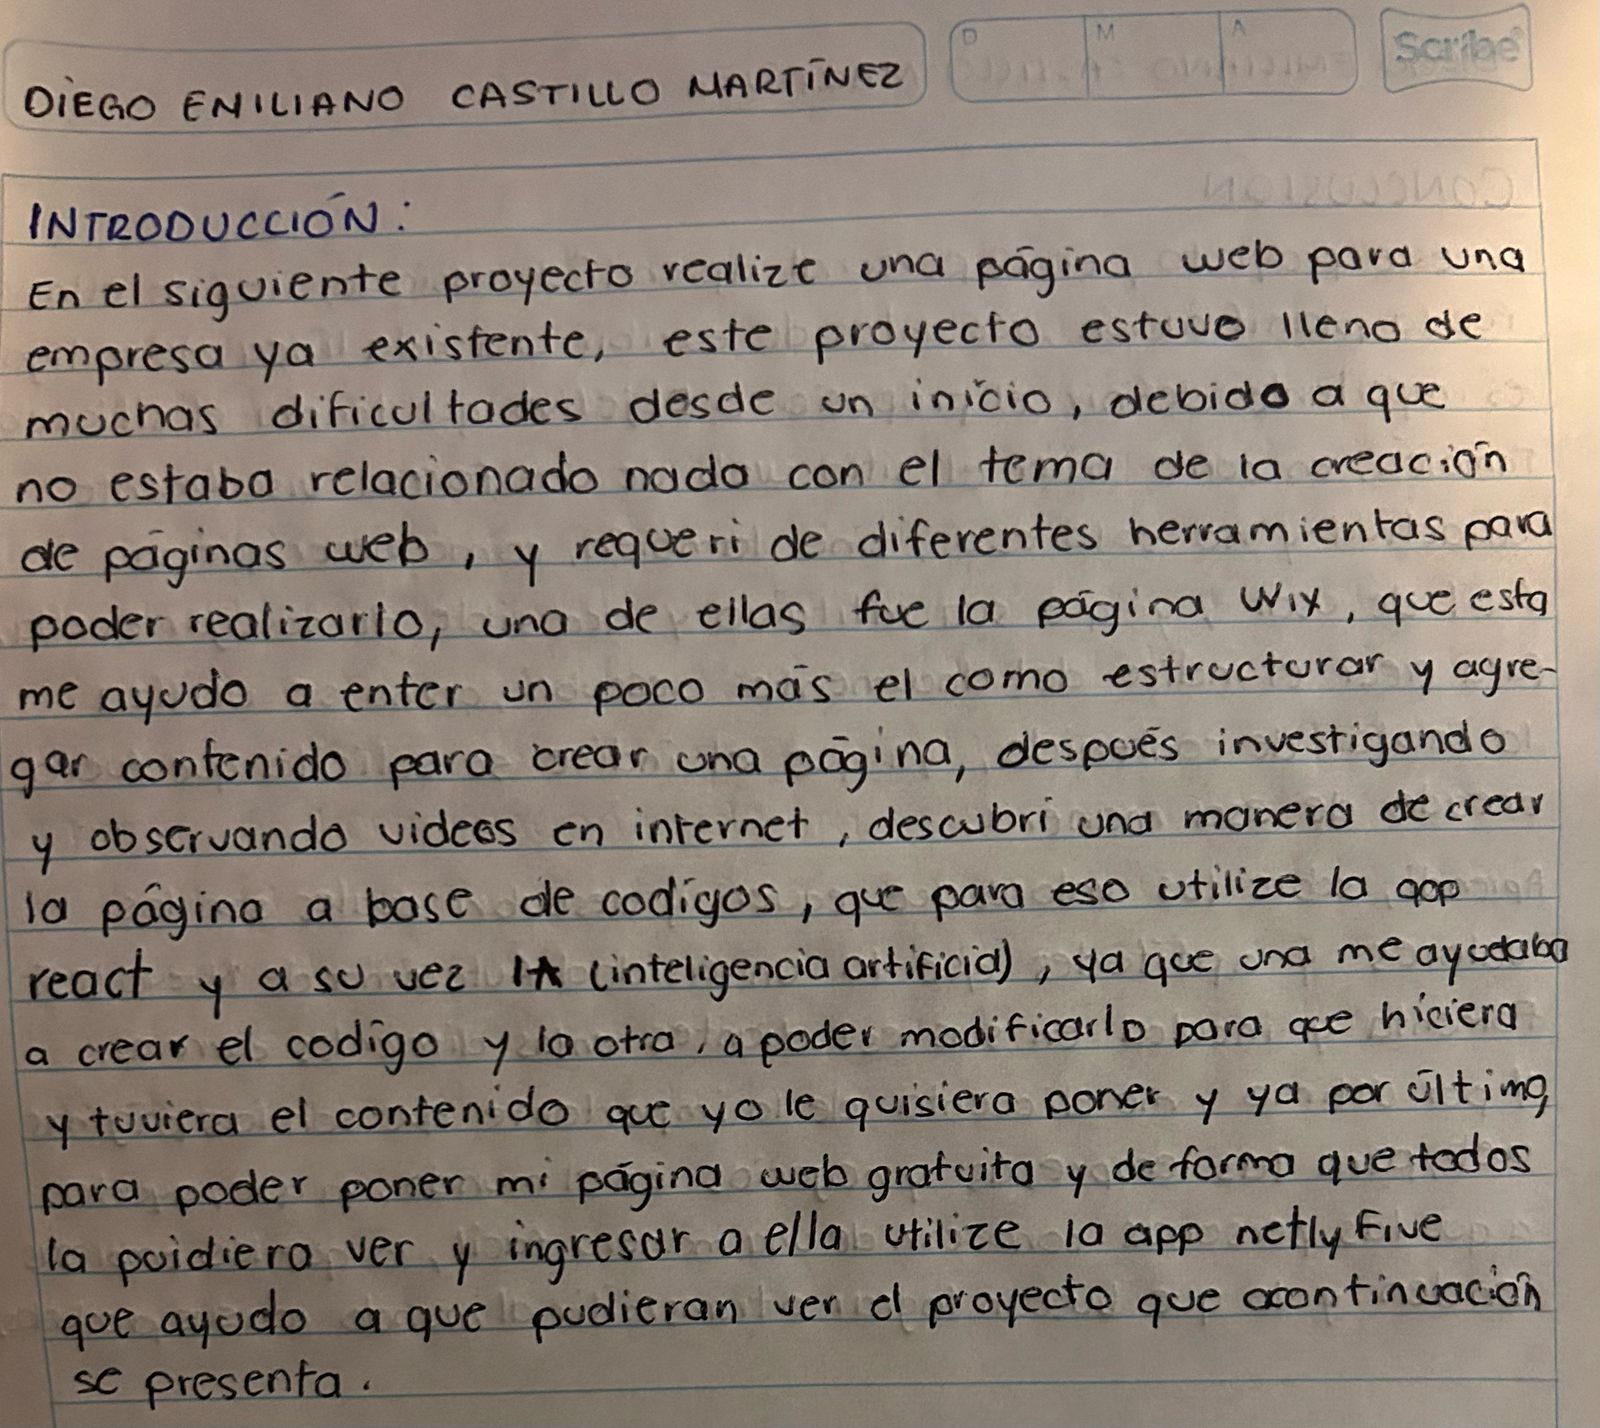 D M A Scribe
DIEGO ENILIANO CASTILLO MARTÍNEZ
INTRODUCCIÓN:
En el siguiente proyecto realize una página web para una
empresa ya existente, este proyecto estuvo lleno de
muchas dificultades desde un inicio, debido a que
no estaba relacionado nada con el tema de la creación
de páginas web, y requeri de diferentes herramientas para
poder realizarlo, una de ellas fue la página Wix, que esta
me ayudo a enter un poco más el como estructurar y agre-
gar contenido para crear una página, después investigando
y observando videos en internet, descubri una manera de crear
la página a base de codígos, que para eso utilize la app
react y a su vez IA (inteligencia artificial), ya que una me ayudaba
a crear el codígo y la otra, a poder modificarlo para que hiciera
y tuviera el contenido que yo le quisiera poner y ya por último,
para poder poner mi página web gratuita y de forma que todos
la puidiera ver y ingresar a ella utilize la app netlyFive
que ayudo a que pudieran ver el proyecto que acontinuación
se presenta.
CONCLUSIÓN